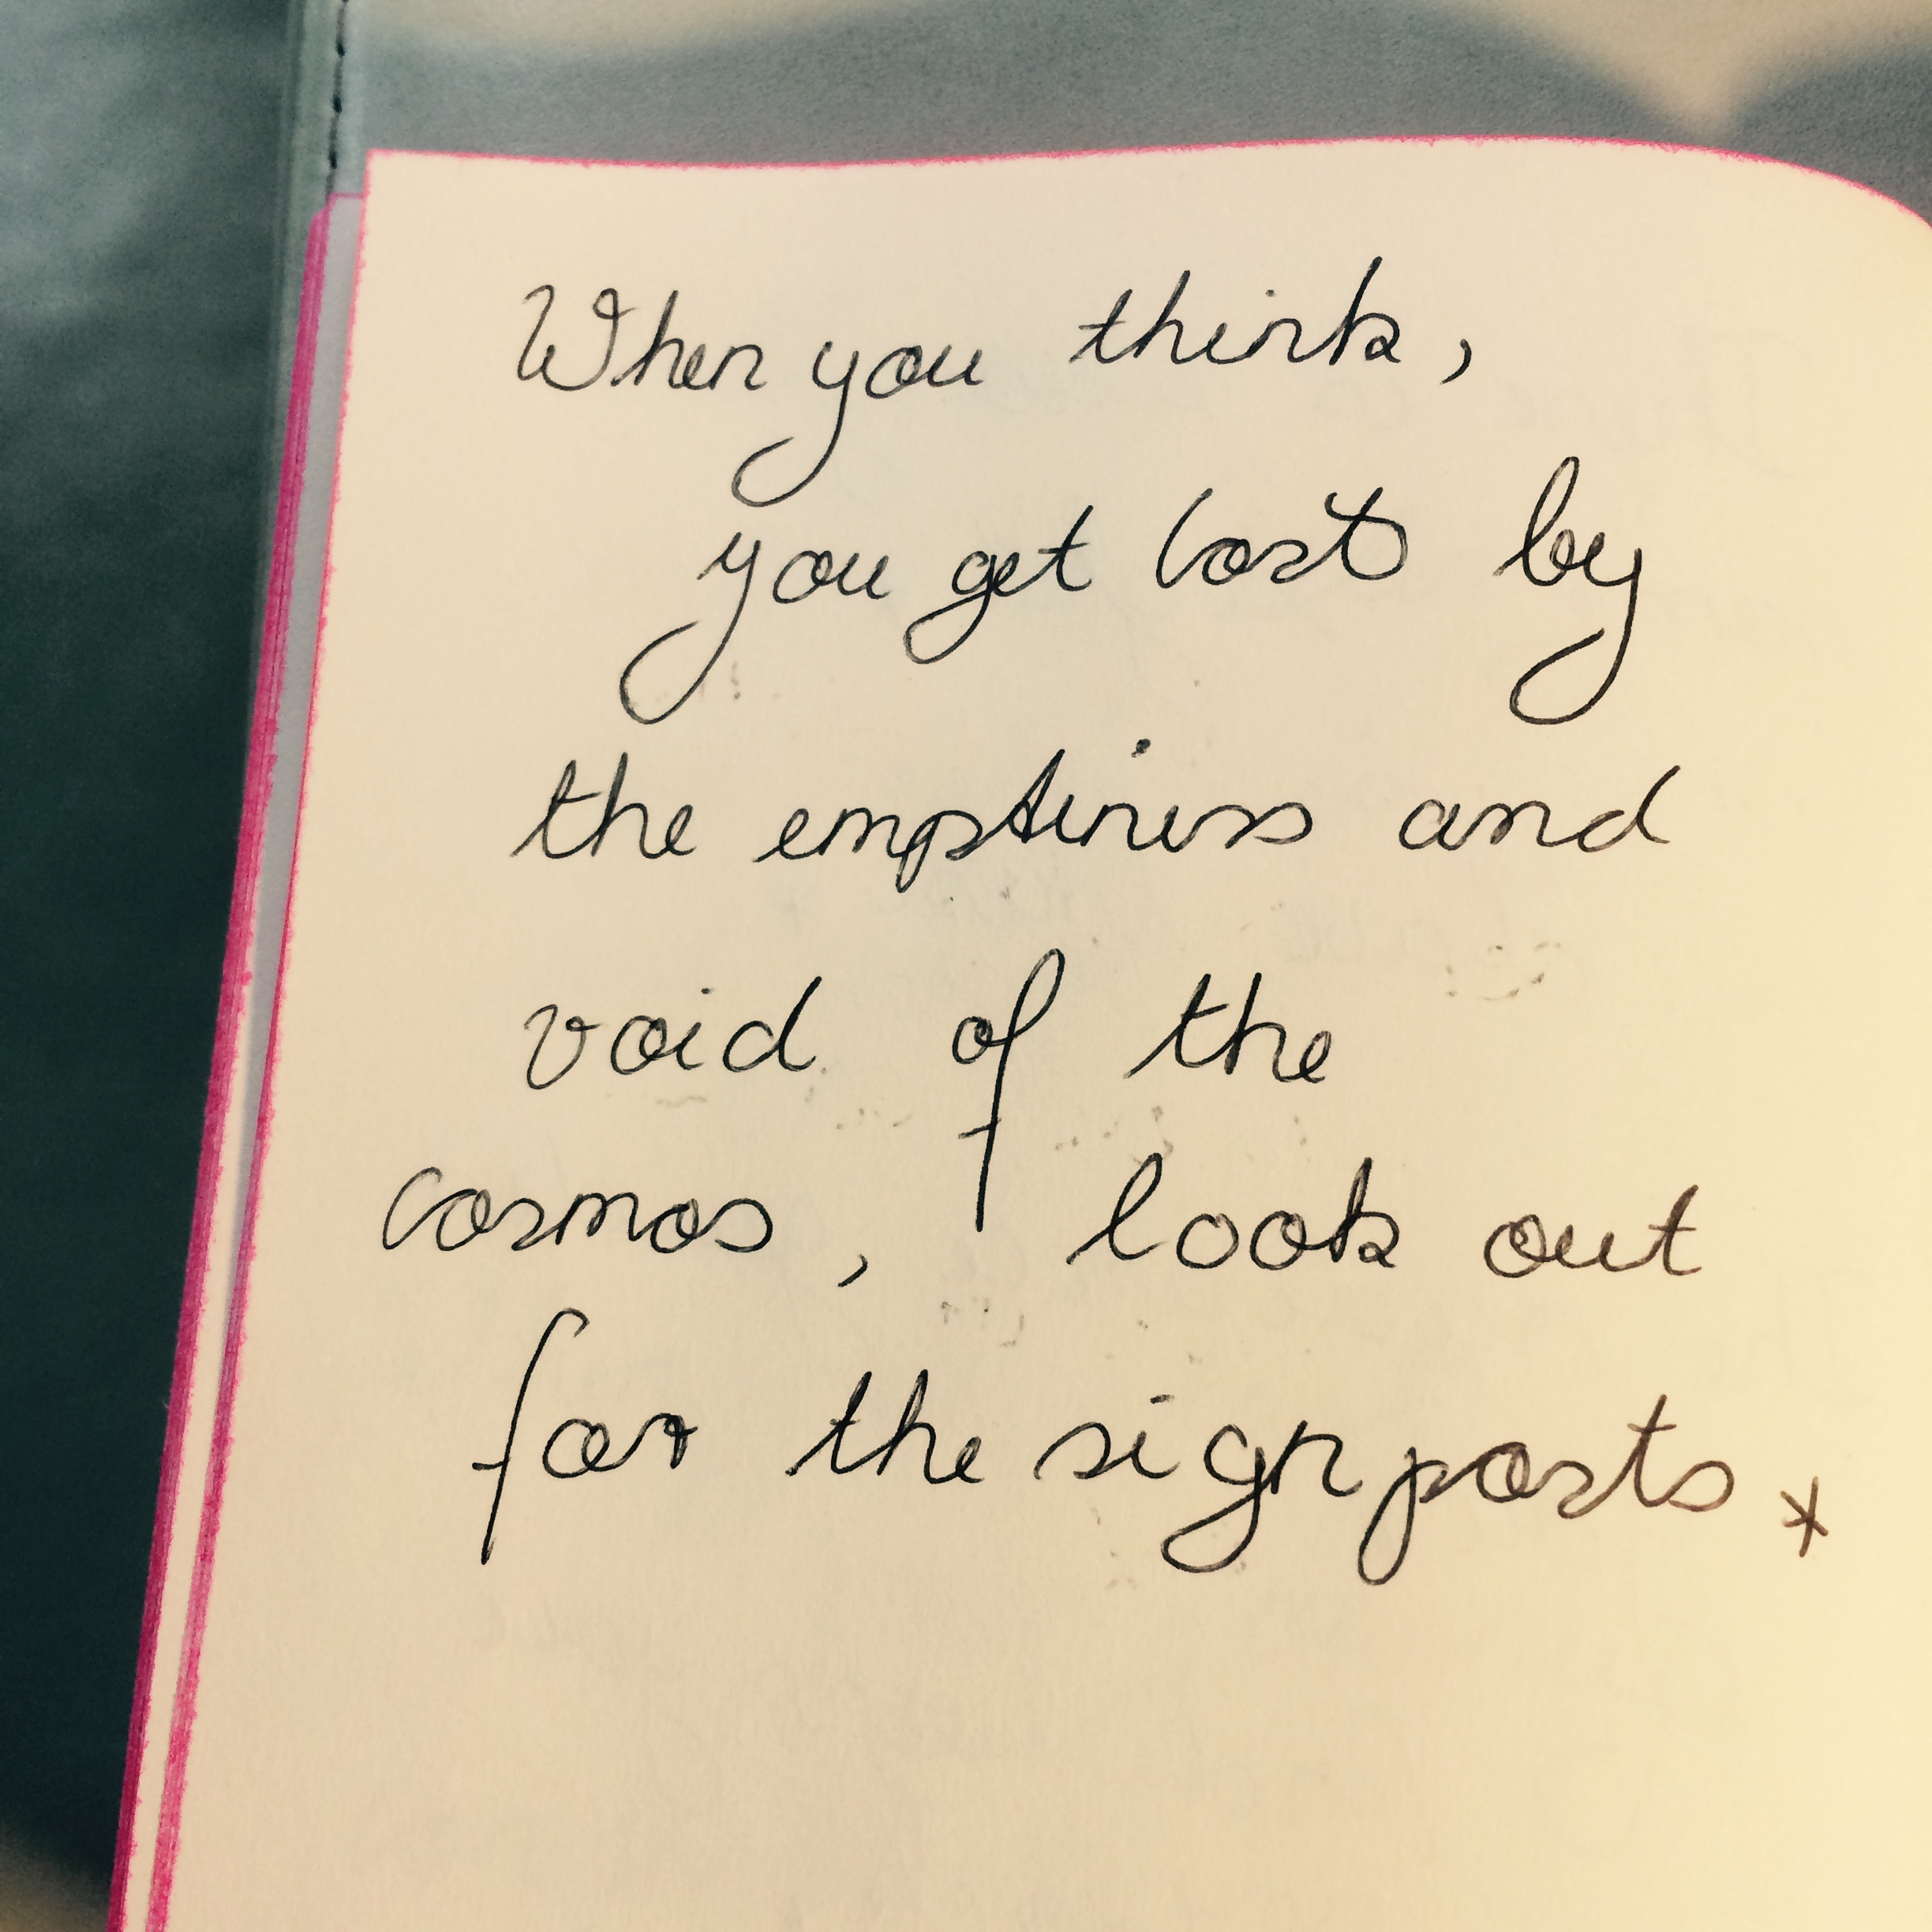 When you think,
you get lost by
the emptiness and
void of the
cosmos, look out
for the signposts*